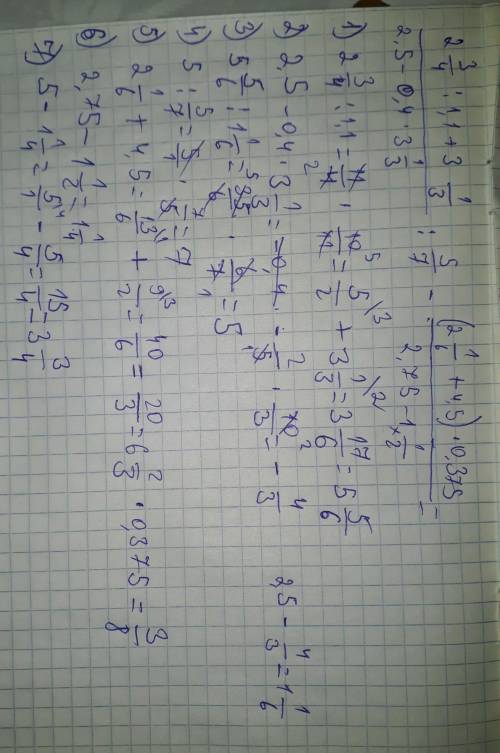 2 3/4 : 1,1 + 3 1/3 / 2,5 - 0,4 · 3 1/3 : 5/7 - (2 1/6 + 4,5) · 0,375 / 2,75 - 1 1/2 =
1) 2 3/4 : 1,1 = 11/4 · 10/11 = 5/2 + 3 1/3 = 3 17/6 = 5 5/6
2) 2,5 - 0,4 · 3 1/3 = - 2/5 · 10/3 = - 4/3
2,5 - 4/3 = 1 1/6
3) 5 5/6 : 1 1/6 = 35/6 · 6/7 = 5
4) 5 : 5/7 = 5/1 · 7/5 = 7
5) 2 1/6 + 4,5 = 13/6 + 9/2 = 40/6 = 20/3 = 6 2/3 · 0,375 = 3/8
6) 2,75 - 1 1/2 = 1 1/4
7) 5 - 1 1/4 = 5/1 - 5/4 = 15/4 = 3 3/4